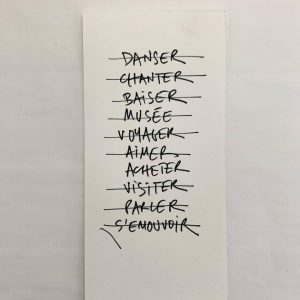 DANSER
CHANTER
BAISER
MUSÉE
VOYAGER
AIMER
ACHETER
VISITER
PARLER
S'EMOUVOIR